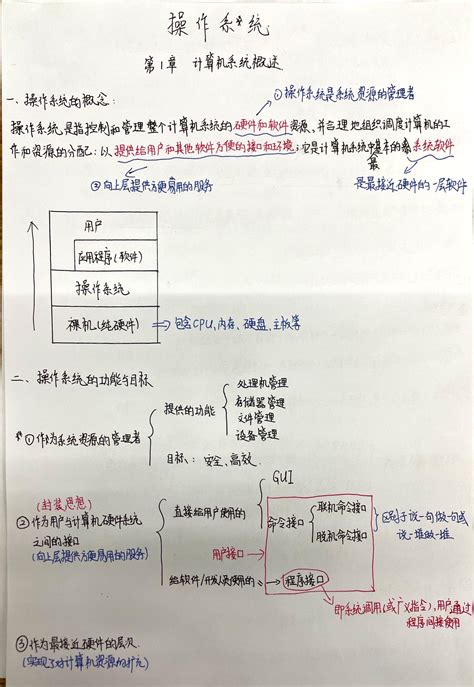 操作系统
第1章 计算机系统概述
①操作系统是系统资源的管理者
一、操作系统的概念:
操作系统是指控制和管理整个计算机系统的硬件和软件资源,并合理地组织调度计算机的工
作和资源的分配;以提供给用户和其他软件方便的接口和环境;它是计算机系统中最基本的系统软件
③向上层提供方便易用的服务
是最接近硬件的一层软件
用户
应用程序(软件)
操作系统
裸机(纯硬件) ⇒ 包含CPU、内存、硬盘、主板等
二、操作系统的功能与目标
①作为系统资源的管理者
提供的功能
处理机管理
存储器管理
文件管理
设备管理
目标:安全、高效.
(封装思想)
②作为用户与计算机硬件系统
之间的接口
(向上层提供方便易用的服务)
直接给用户使用的
GUI
命令接口
联机命令接口
脱机命令接口
区别于说一句做一句或
说一堆做一堆
用户接口
给软件/开发人员使用的
程序接口
即系统调用(或广义指令),用户通过
程序间接使用
③作为最接近硬件的层次
(实现了对计算机资源的扩充)